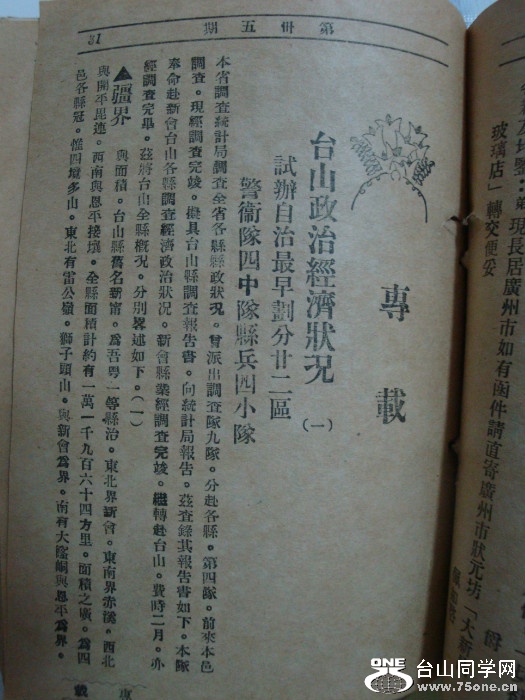 第卅五期
31
專載
台山政治經濟狀况（一）
試辦自治最早劃分廿二區
警衞隊四中隊縣兵四小隊
本省調查統計局調查全省各縣縣政狀況。曾派出調查隊九隊。分赴各縣。第四隊。前來本邑
調查。現經調查完竣。擬具台山縣調查報告書。向統計局報告。茲查錄其報告書如下。本隊
奉命赴新會台山各縣調查經濟政治狀况。新會縣業經調查完竣。繼轉赴台山。費時二月。亦
經調查完畢。茲將台山全縣槪况。分別畧述如下。（一）
▲疆界 與面積。台山縣舊名新甯。為吾粤一等縣治。東北界新會。東南界赤溪。西北
與開平毘連。西南與恩平接壤。全縣面積計約有一萬一千九百六十四方里。面積之廣。為四
邑各縣冠。惟四境多山。東北有雷公嶺。獅子頭山。與新會為界。南有大隆峒與恩平為界。
專載
現長居廣州市如有函件請直寄廣州市狀元坊「大新
玻璃店」轉交便妥
ONE
台山同学网
www.75one.cn